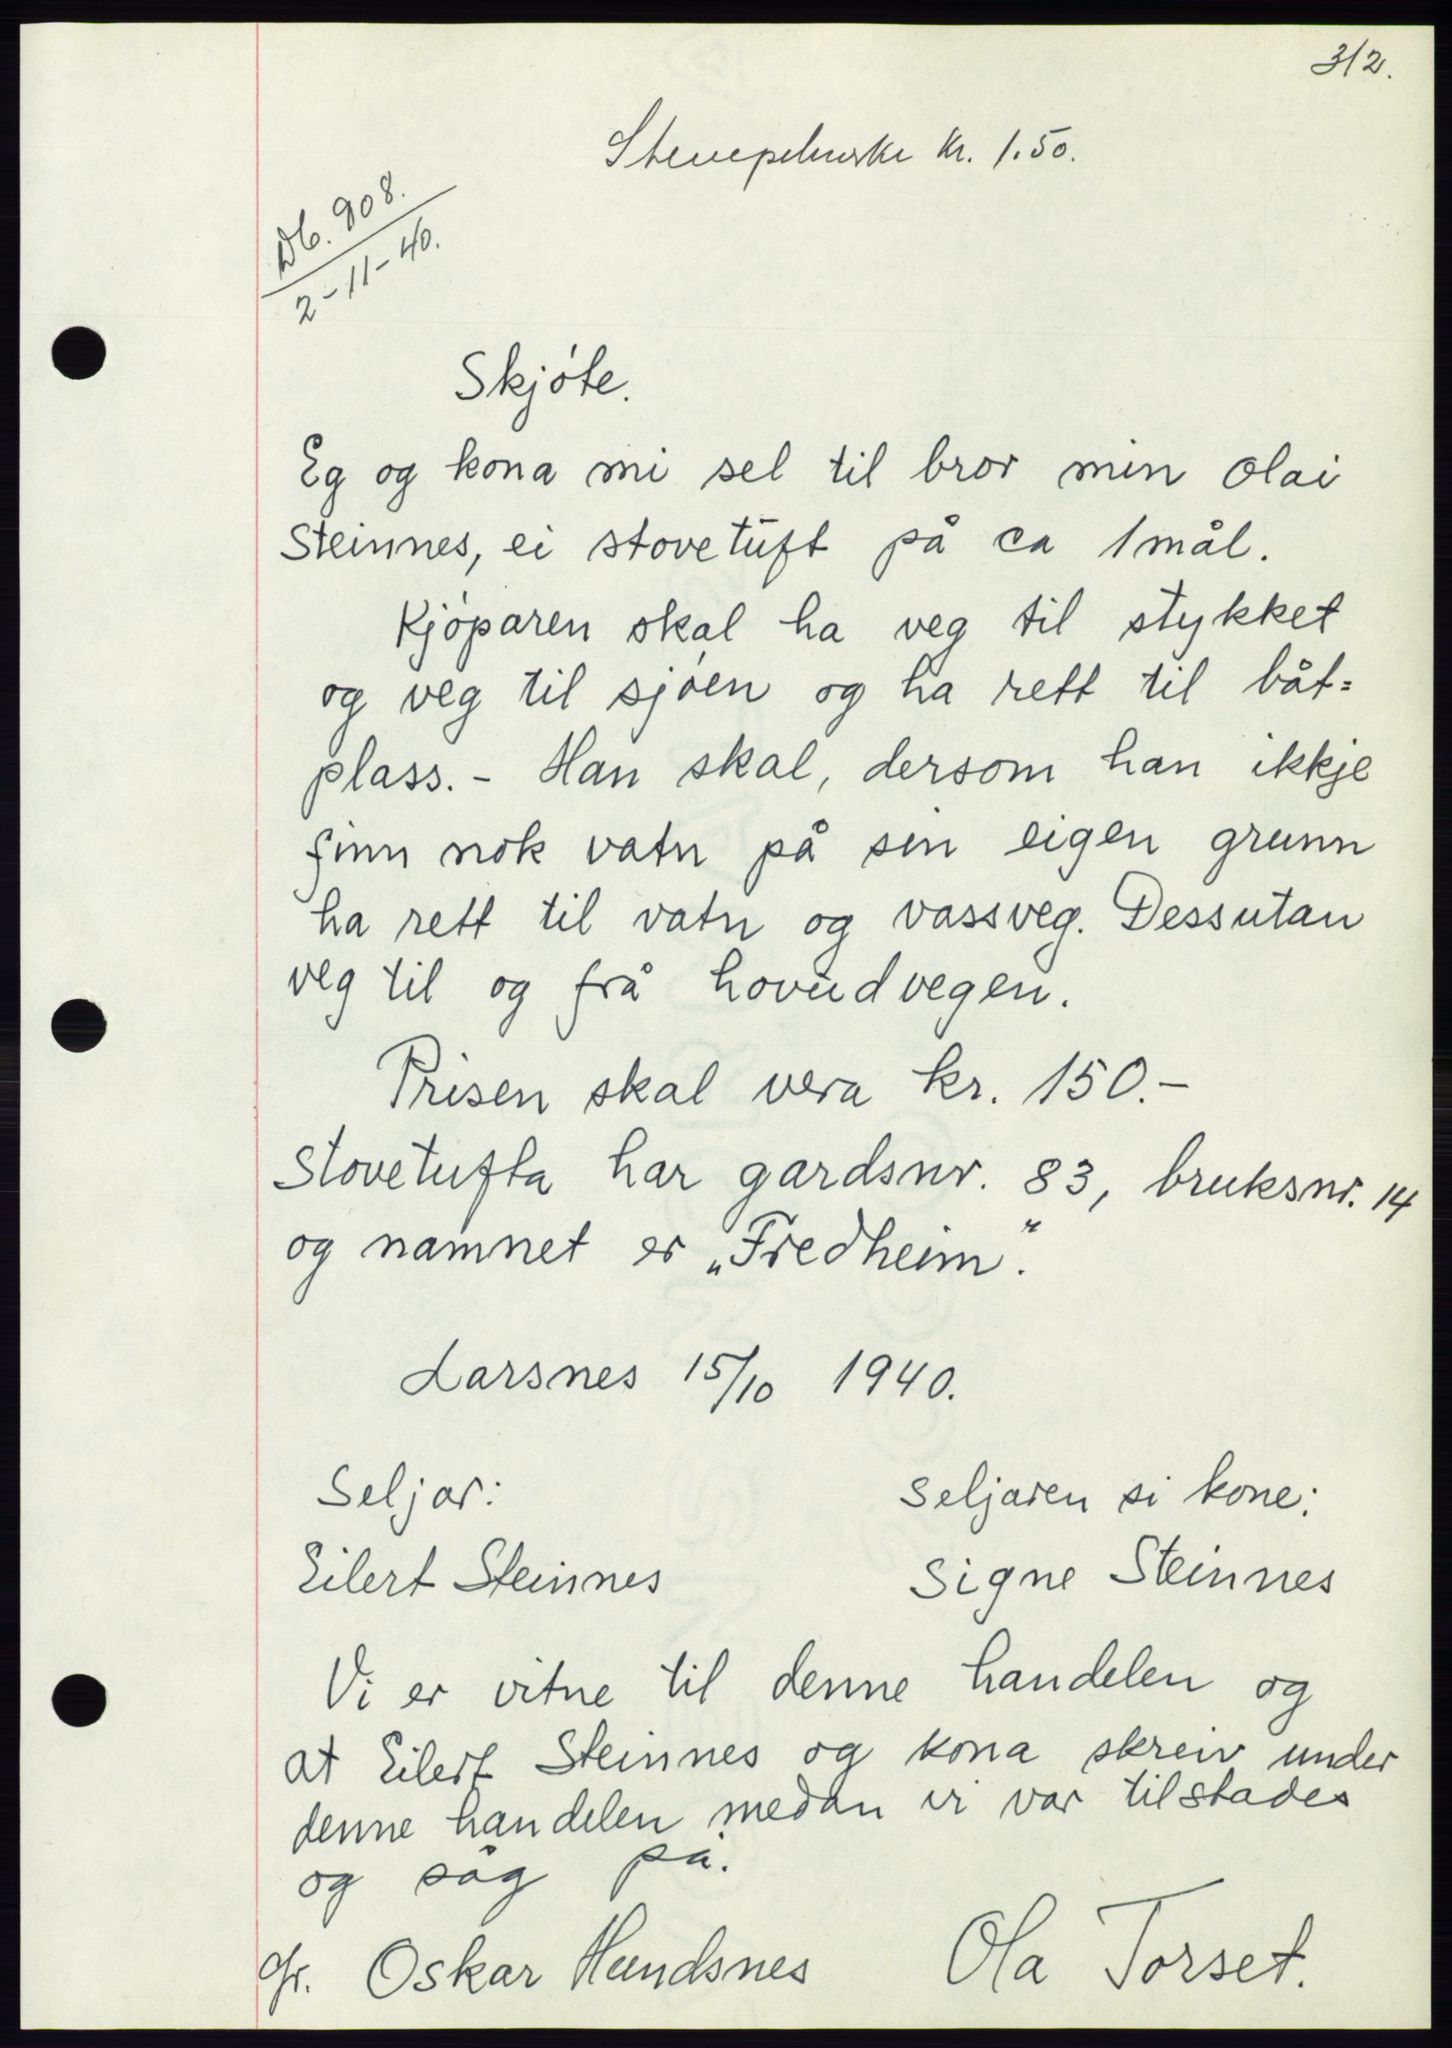 312.
Stempelmerke kr. 1.50.
Db. 908.
2-11-40.
Skjóte.
Eg og kona mi sel til bror min Olai
Steinnes, ei stovetuft på ca 1 mål.
Kjóparen skal ha veg til stykket
og veg til sjóen og ha rett til båt=
plass. - Han skal, dersom han ikkje
finn nok vatn på sin eigen grunn
ha rett til vatn og vassveg. Dessutan
veg til og frå hovudvegen.
Prisen skal vera kr. 150.-
Stovetufta har gardsnr. 83, bruksnr. 14
og namnet er „Fredheim".
Larsnes 15/10 1940.
Seljar: Seljaren si kone:
Eilert Steinnes Signe Steinnes
Vi er vitne til denne handelen og
at Eilert Steinnes og kona skreiv under
denne handelen medan vi var tilstades
og såg på.
Oskar Hundsnes Ola Torset.